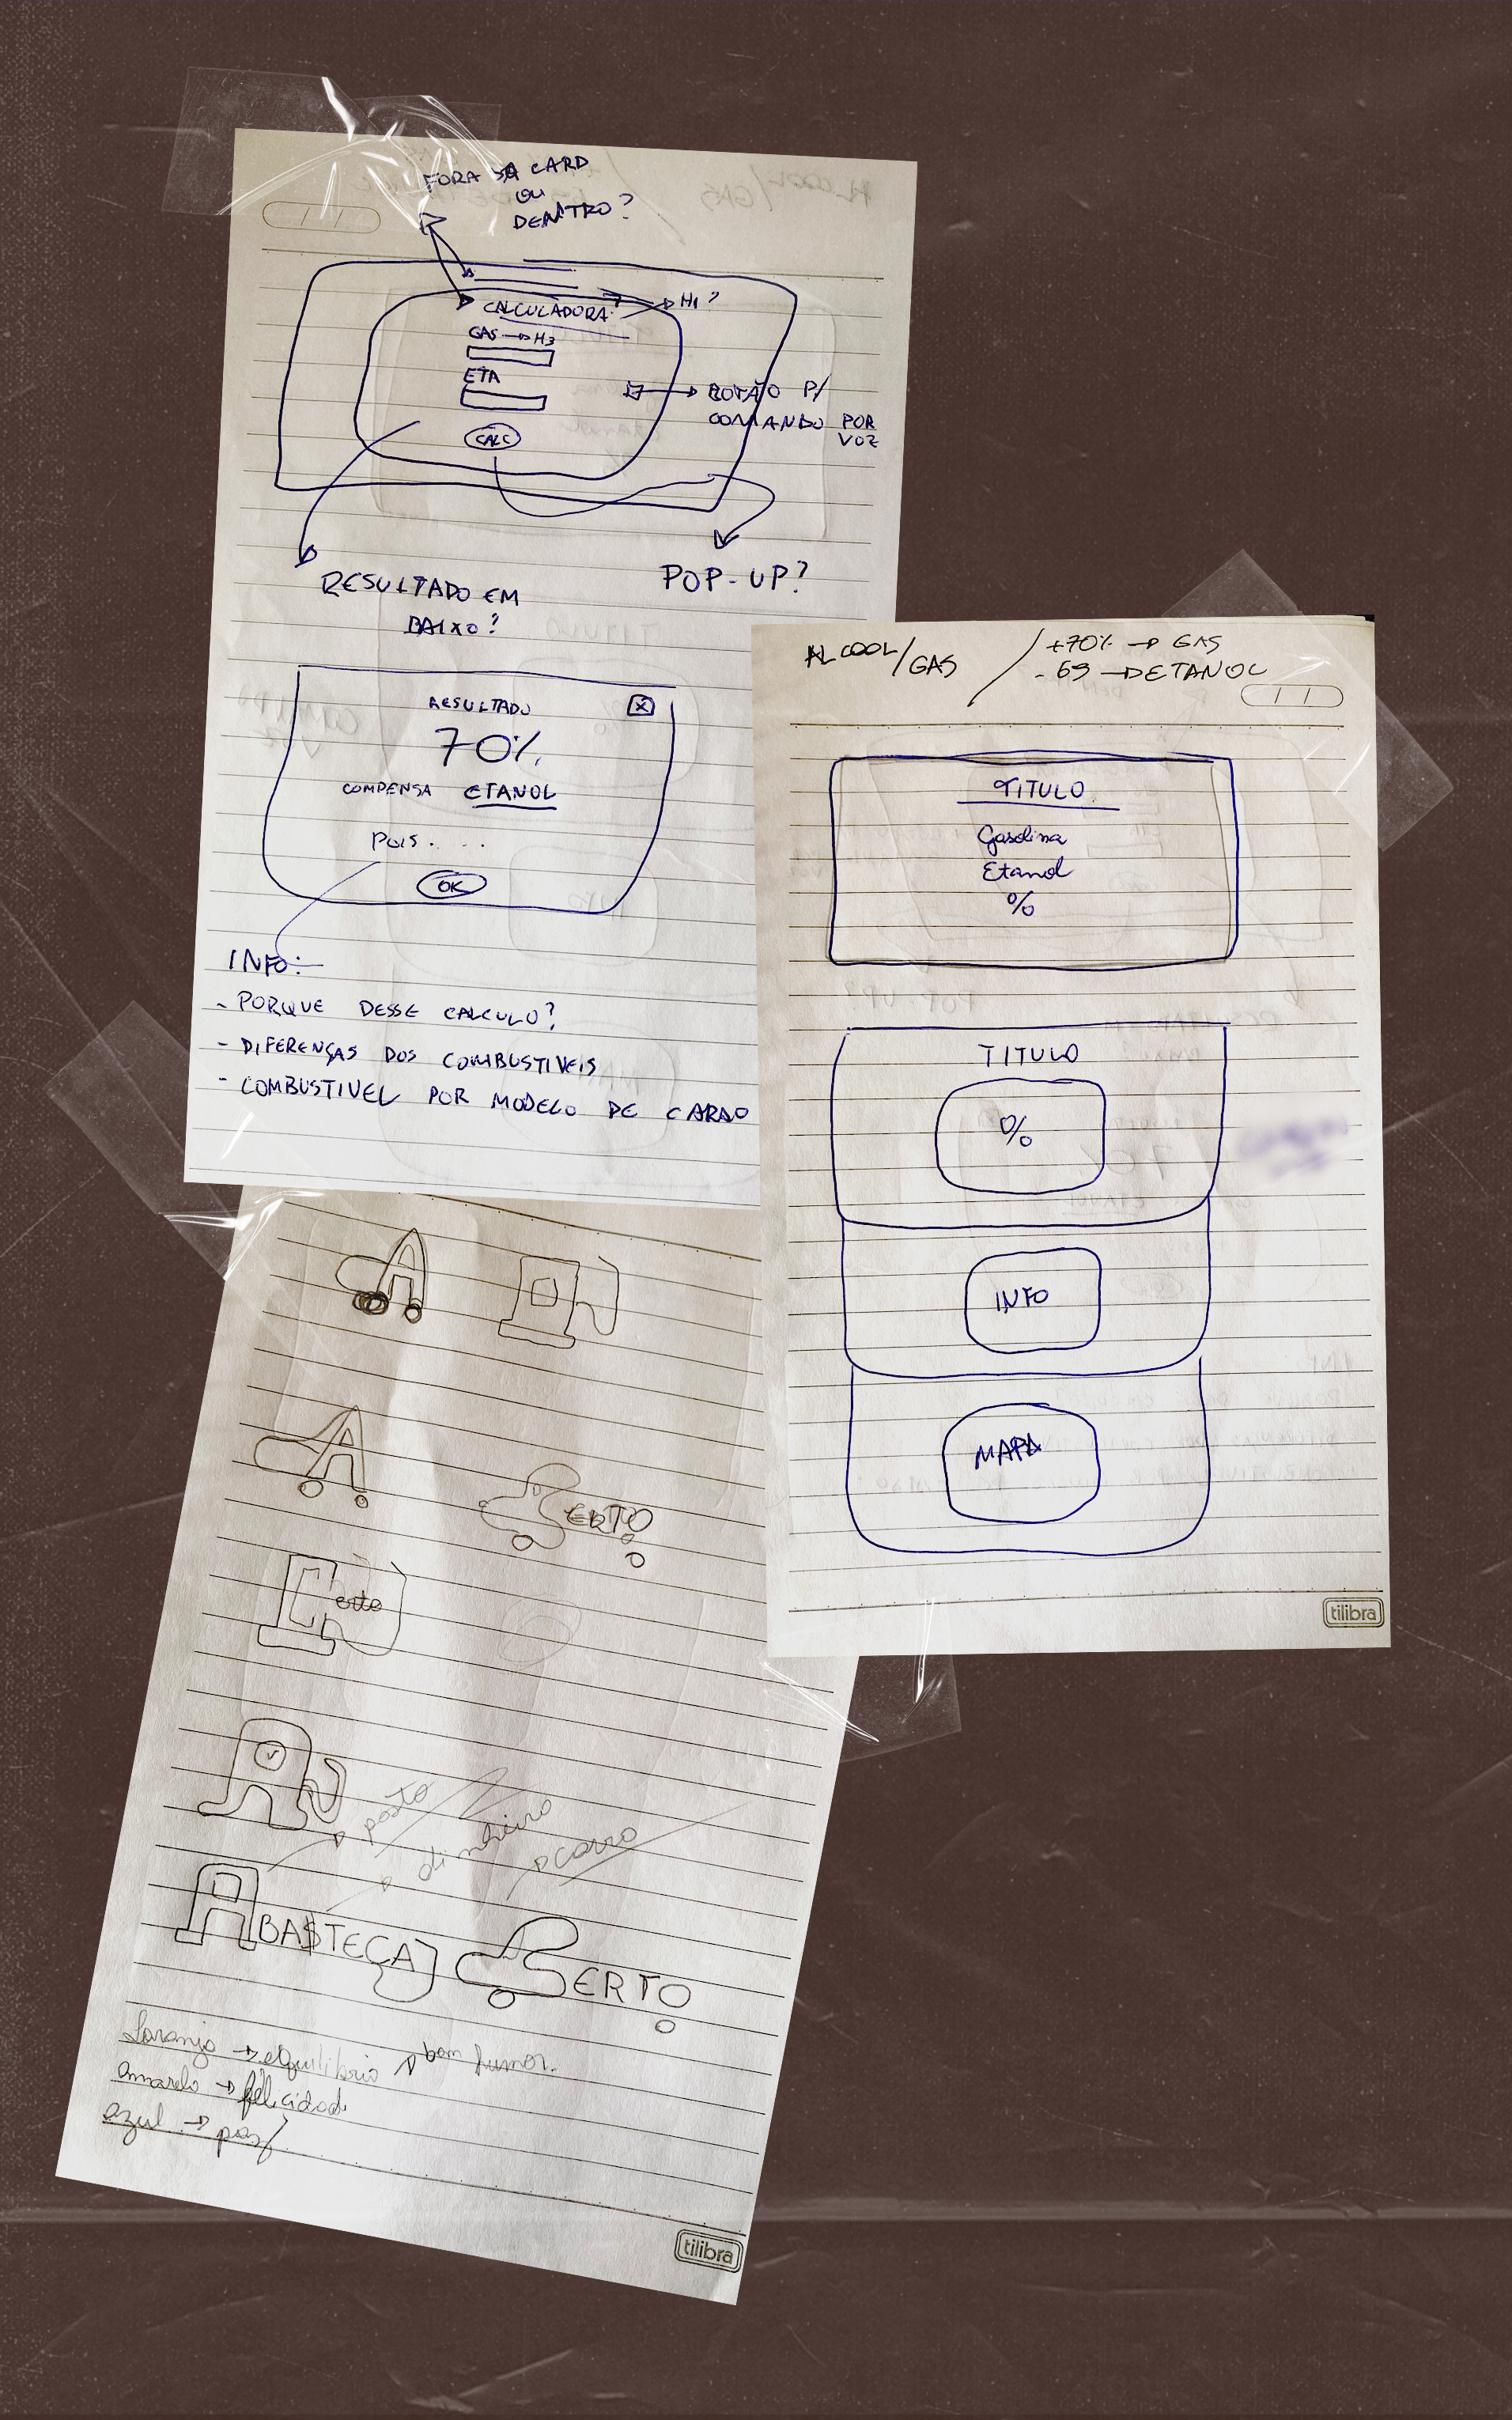 FORA DA CARD
OU
DENTRO?
CALCULADORA
H1?
GAS → H3
ETA
BOTÃO P/
COMANDO POR
VOZ
CALC
RESULTADO EM
BAIXO?
POP-UP?
RESULTADO
X
70%
COMPENSA ETANOL
POIS....
OK
INFO:
- PORQUE DESSE CALCULO?
- DIFERENÇAS DOS COMBUSTIVEIS
- COMBUSTIVEL POR MODELO DE CARRO
ALCOOL/GAS
+70% → GAS
- 69 → ETANOL
TITULO
Gasolina
Etanol
%
TITULO
%
INFO
MAPA
tilibra
A
A
CERTO
Certo
A
posto
dinheiro
carro
ABA$TEÇA CERTO
Laranja → equilibrio → bom humor.
amarelo → felicidade
azul → paz
tilibra